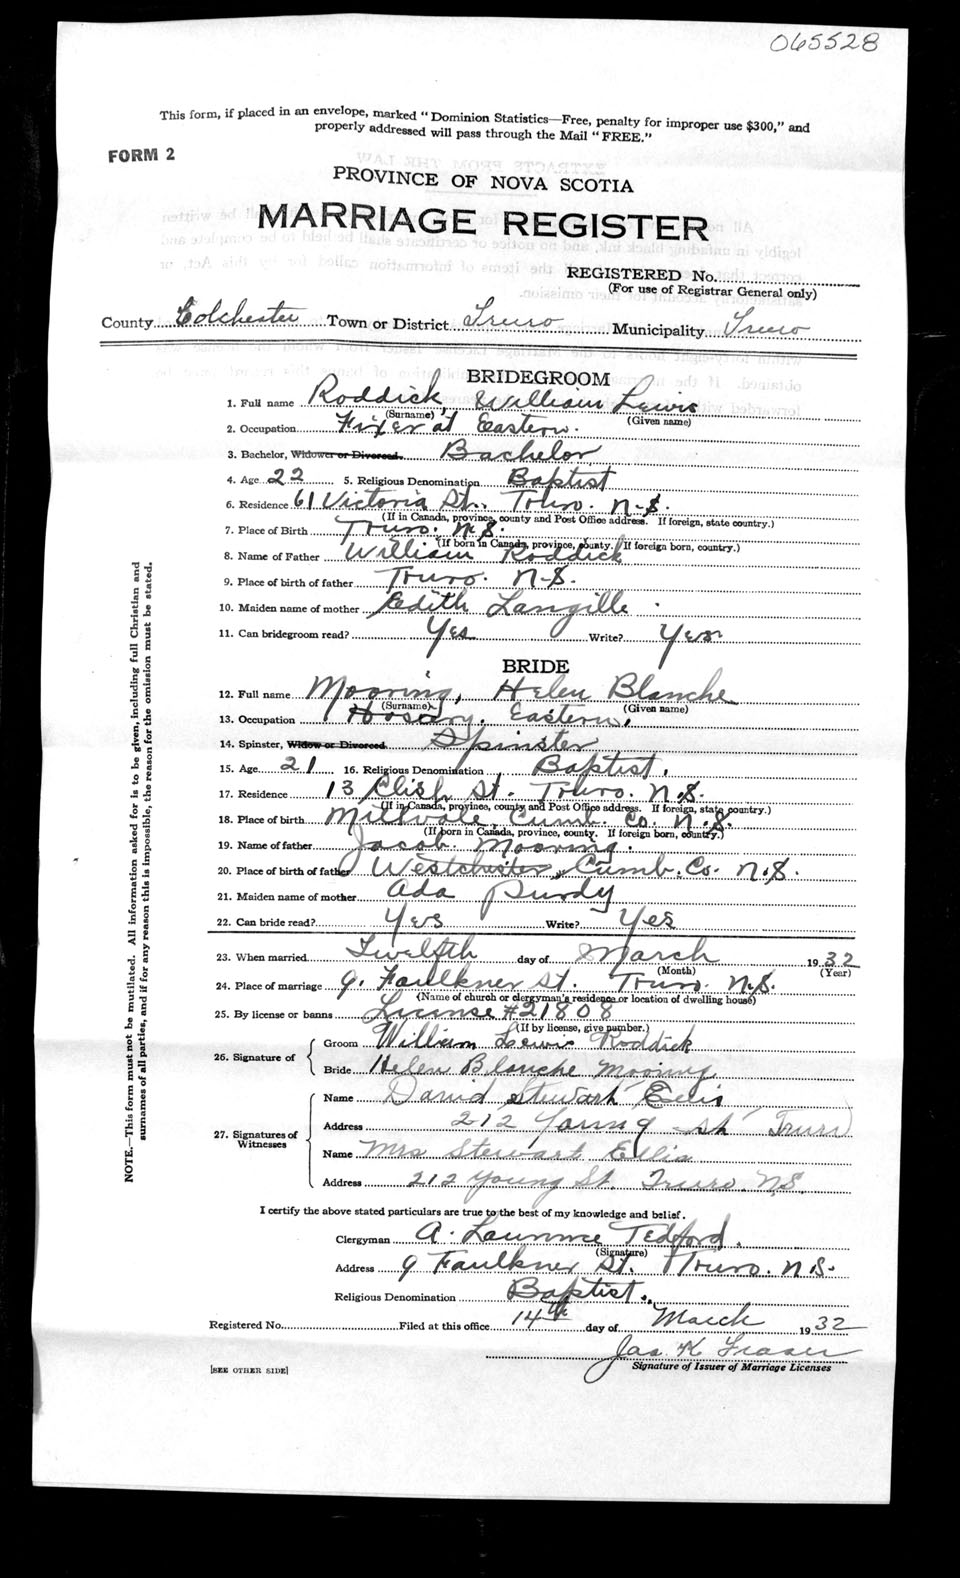 065528
This form, if placed in an envelope, marked "Dominion Statistics—Free, penalty for improper use $300," and
properly addressed will pass through the Mail "FREE."
FORM 2
PROVINCE OF NOVA SCOTIA
MARRIAGE REGISTER
REGISTERED No.
(For use of Registrar General only)
County Colchester Town or District Truro Municipality Truro
BRIDEGROOM
1. Full name Roddick, William Lewis
(Surname) (Given name)
2. Occupation Fixer at Eastern.
3. Bachelor, Widower or Divorced. Bachelor
4. Age 22 5. Religious Denomination Baptist
6. Residence 61 Victoria St., Truro. N.S.
(If in Canada, province, county and Post Office address. If foreign, state country.)
7. Place of Birth Truro. N.S.
(If born in Canada, province, county. If foreign born, country.)
8. Name of Father William Roddick
9. Place of birth of father Truro. N.S.
10. Maiden name of mother Edith Langille
11. Can bridegroom read? Yes Write? Yes
BRIDE
12. Full name Mooring, Helen Blanche
(Surname) (Given name)
13. Occupation Hosery. Eastern.
14. Spinster, Widow or Divorced Spinster
15. Age 21 16. Religious Denomination Baptist.
17. Residence 13 St. Truro. N.S.
(If in Canada, province, county and Post Office address. If foreign, state country.)
18. Place of birth Millvale, Cumb. Co. N.S.
(If born in Canada, province, county. If foreign born, country.)
19. Name of father Jacob. Mooring.
20. Place of birth of father Westchester, Cumb. Co. N.S.
21. Maiden name of mother Ada Purdy
22. Can bride read? Yes Write? Yes
23. When married Twelfth day of March 1932
(Month) (Year)
24. Place of marriage 9. Faulkner St. Truro. N.S.
(Name of church or clergyman's residence or location of dwelling house)
25. By license or banns License #21808
(If by license, give number.)
26. Signature of
Groom William Lewis Roddick
Bride Helen Blanche Mooring
27. Signatures of Witnesses
Name David Stewart Ellis
Address 212 Young St Truro
Name Mrs Stewart Ellis
Address 212 Young St. Truro. N.S.
I certify the above stated particulars are true to the best of my knowledge and belief.
Clergyman A. Lawrence Tedford.
(Signature)
Address 9 Faulkner St. Truro. N.S.
Religious Denomination Baptist.
Registered No. Filed at this office 14th day of March 1932
Jas K Fraser
Signature of Issuer of Marriage Licenses
[SEE OTHER SIDE]
NOTE.—This form must not be mutilated. All information asked for is to be given, including full Christian and
surnames of all parties, and if for any reason this is impossible, the reason for the omission must be stated.